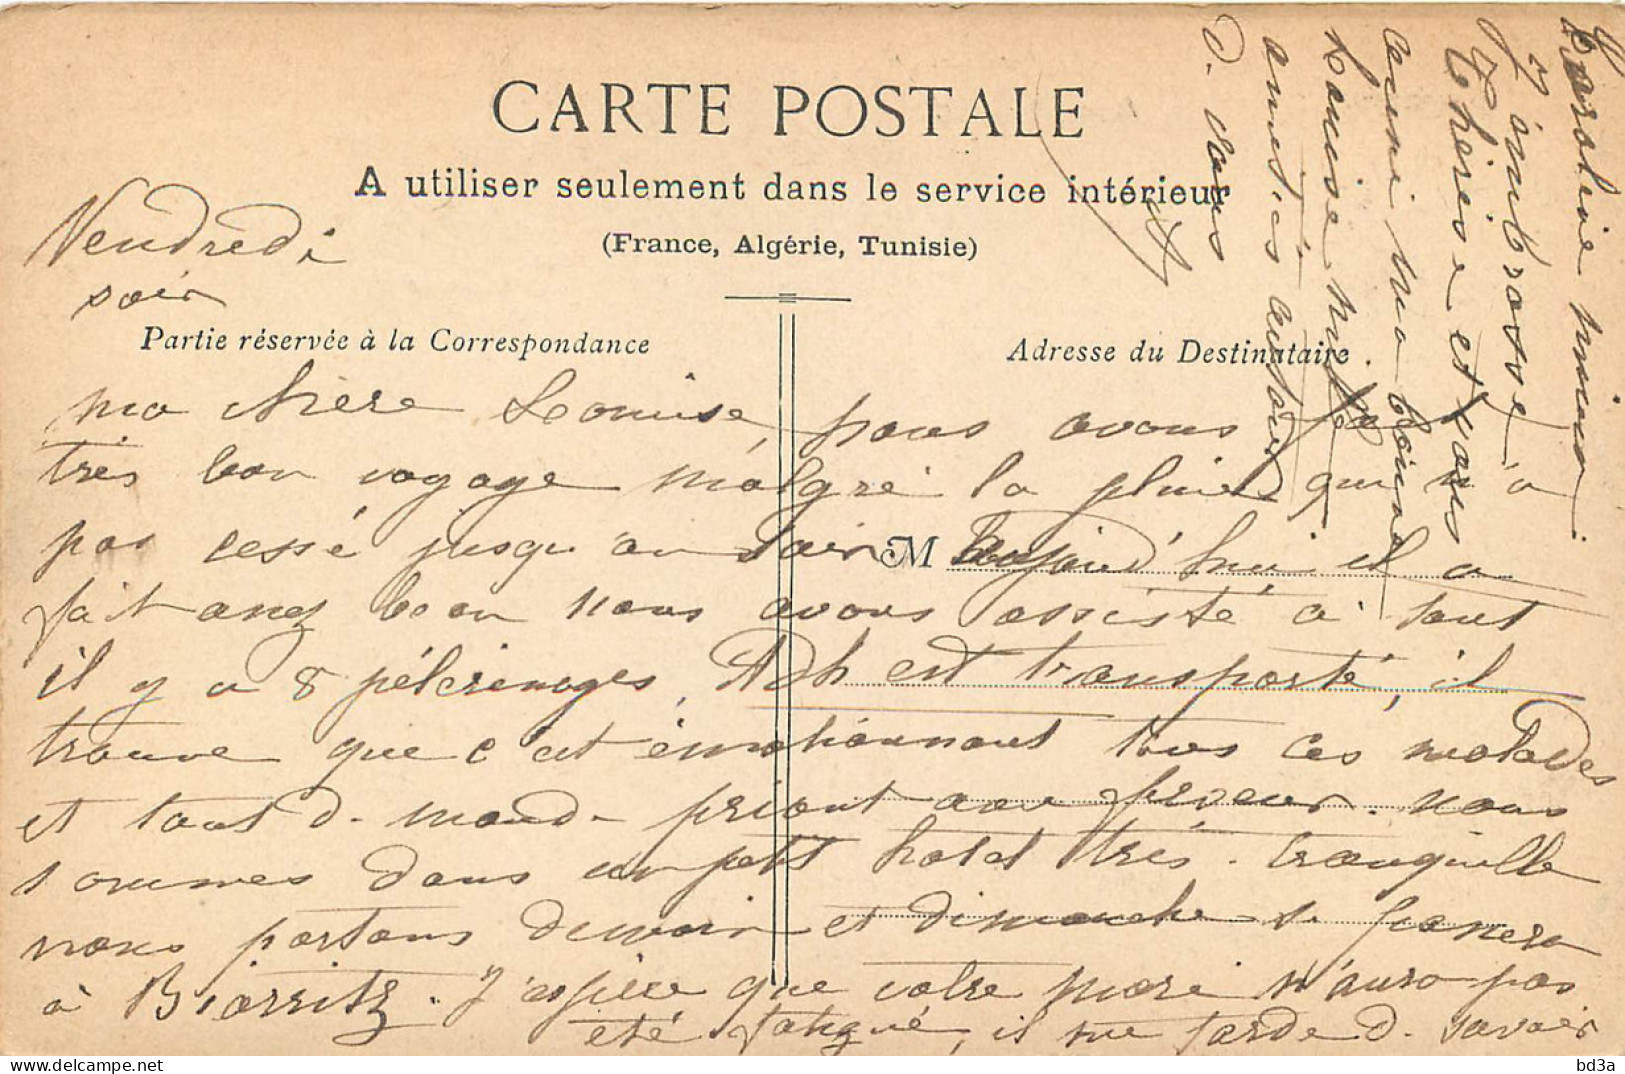 CARTE POSTALE
A utiliser seulement dans le service intérieur
(France, Algérie, Tunisie)
Vendredi
soir
Partie réservée à la Correspondance
Adresse du Destinataire.
M
ma chère Louise, nous avons fa
très bon voyage malgré la pluie qui n'a
pas cessé jusqu'au soir aujourd'hui il a
fait assez beau nous avons assisté à tout
il y a 8 pélerinages, Adh est transporté, il
trouve que c'est émotionnant tous ces malades
et tout d. mond. priant avec ferveur. nous
sommes dans un petit hotel très tranquille
nous partons demain et dimanche s.
à Biarritz. J'espère que votre mari n'aura pas
été fatigué, il me tarde d. savoir
J'embrasse
Thérèse et vous
aussi ma bonne
Louise mille
amitiés autour
d. vous
bd3a